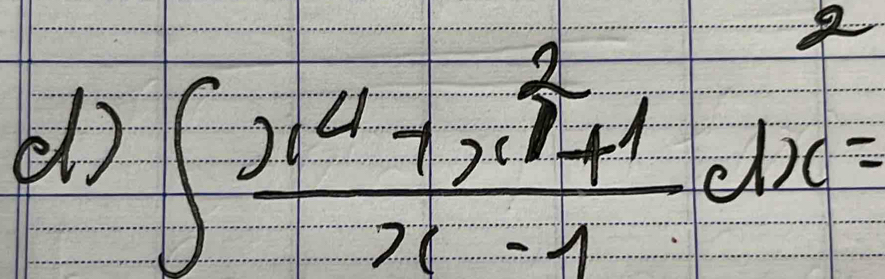 2
d) ∫ (x⁴ + x² + 1)/(x - 1) dx =